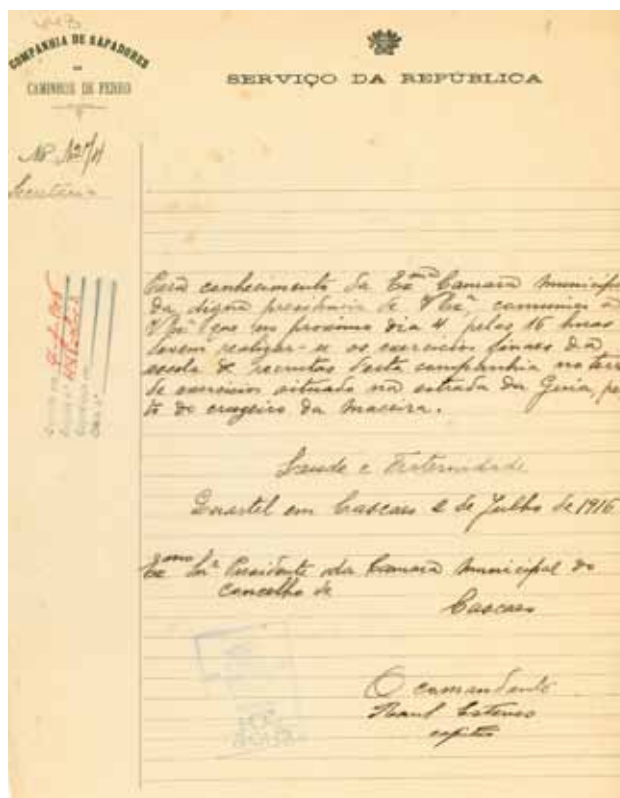 COMPANHIA DE SAPADORES
DE
CAMINHOS DE FERRO
SERVIÇO DA REPÚBLICA
Nº 127/H
Para conhecimento da Exma Camara Municip
da digna presidencia de V. Exª, communico a
V. Exª que no proximo dia 4 pelas 16 horas
devem realizar-se os exercicios finaes da
escola de recrutas desta companhia no terr
de exercicios situado na estrada da Guia, per
to do cruzeiro da
Saude e Fraternidade
Quartel em Cascaes 2 de Julho de 1916
Exmo Snr Presidente da Camara Municipal do
concelho de
Cascaes
O comandante
Raul Esteves